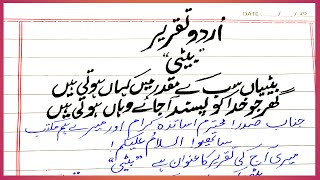 DATE
اُردو تقریر
"بیٹی"
بیٹیاں سب کے مقدر میں کہاں ہوتی ہیں
گھر جو خدا کو پسند آجائے وہاں ہوتی ہیں
جناب صدر! محترم اساتذہ کرام اور میرے ہم مکتب
ساتھیوں السلام علیکم!
میری آج کی تقریر کا عنوان ہے "بیٹی"